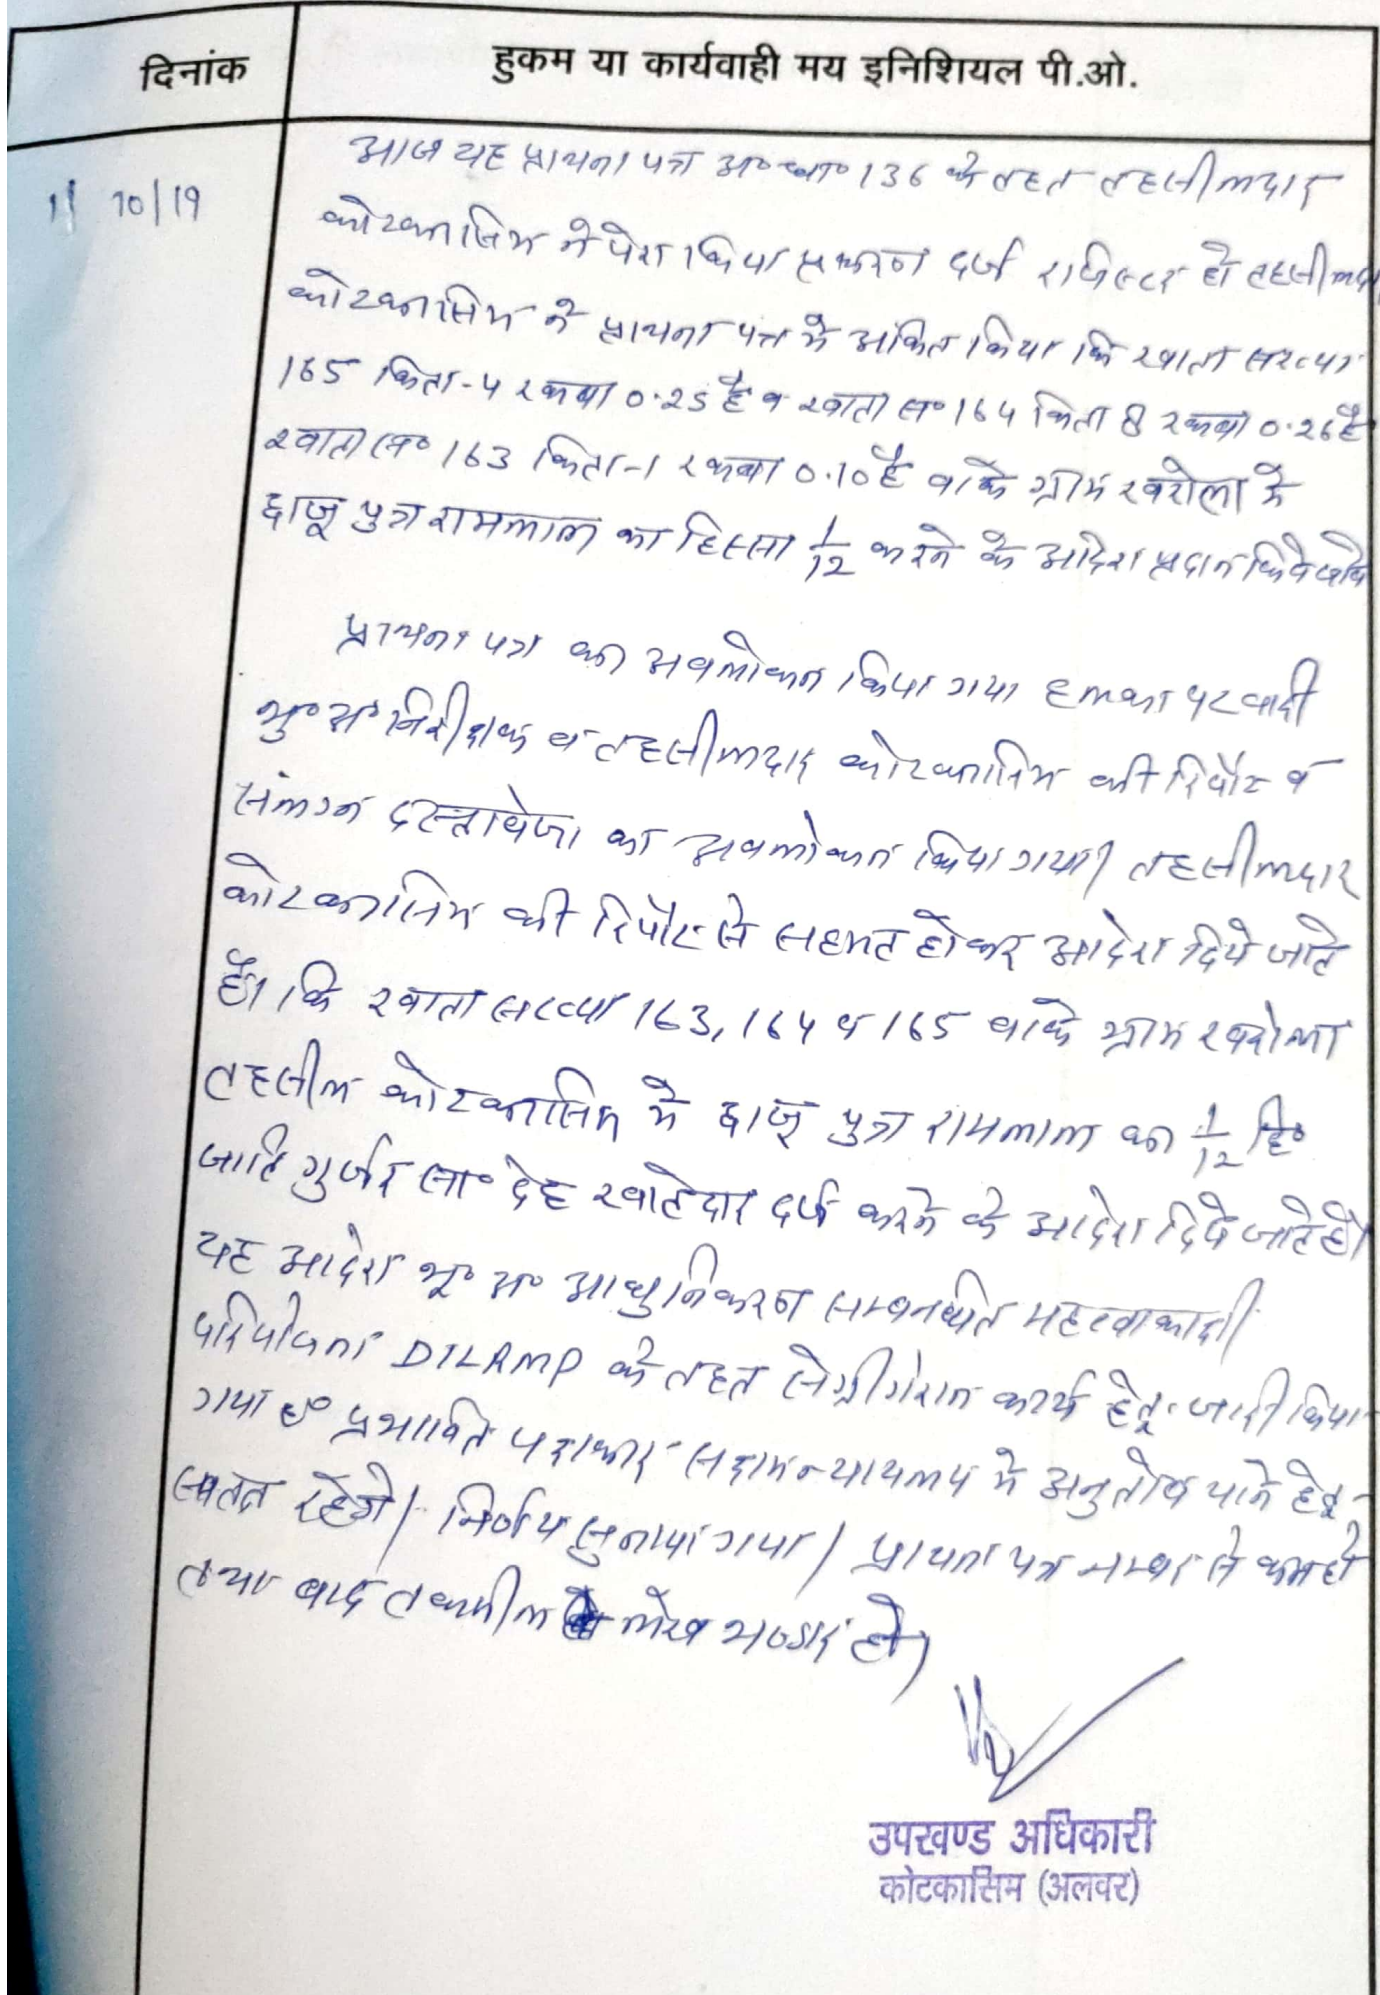 दिनांक
हुकम या कार्यवाही मय इनिशियल पी.ओ.
10/19
आज यह प्रार्थना पत्र अ० धा० 136 के तहत तहसीलदार
कोटकासिम ने पेश किया प्रकरण दर्ज रजिस्टर हो तहसीलदार
कोटकासिम ने प्रार्थना पत्र मे अंकित किया कि खाता संख्या
165 किता-4 रकबा 0.25 है व खाता स० 164 किता 8 रकबा 0.26 है
खाता स० 163 किता-1 रकबा 0.10 है वाके ग्राम खरोला मे
छाजू पुत्र रामलाल का हिस्सा 1/12 करने के आदेश प्रदान किये जावे
प्रार्थना पत्र का अवलोकन किया गया हल्का पटवारी
भू० अ० निरीक्षक व तहसीलदार कोटकासिम की रिपोर्ट व
संलग्न दस्तावेजो का अवलोकन किया गया। तहसीलदार
कोटकासिम की रिपोर्ट से सहमत होकर आदेश दिये जाते
है। कि खाता संख्या 163, 164 व 165 वाके ग्राम खरोला
तहसील कोटकासिम मे छाजू पुत्र रामलाल का 1/12 हि०
जाति गुर्जर सा० देह खातेदार दर्ज करने के आदेश दिये जाते है।
यह आदेश भू० अ० आधुनिकरण सम्बन्धित महत्वाकांक्षी
परियोजना DILRMP के तहत सेग्रीगेशन कार्य हेतू जारी किया
गया है प्रभावित पक्षकार सक्षम न्यायालय मे अनुतोष पाने हेतू
स्वतंत्र रहेगे। निर्णय सुनाया गया। प्रार्थना पत्र नम्बर से कम हो
तथा बाद तकमील लेख भण्डार हो।
उपखण्ड अधिकारी
कोटकासिम (अलवर)